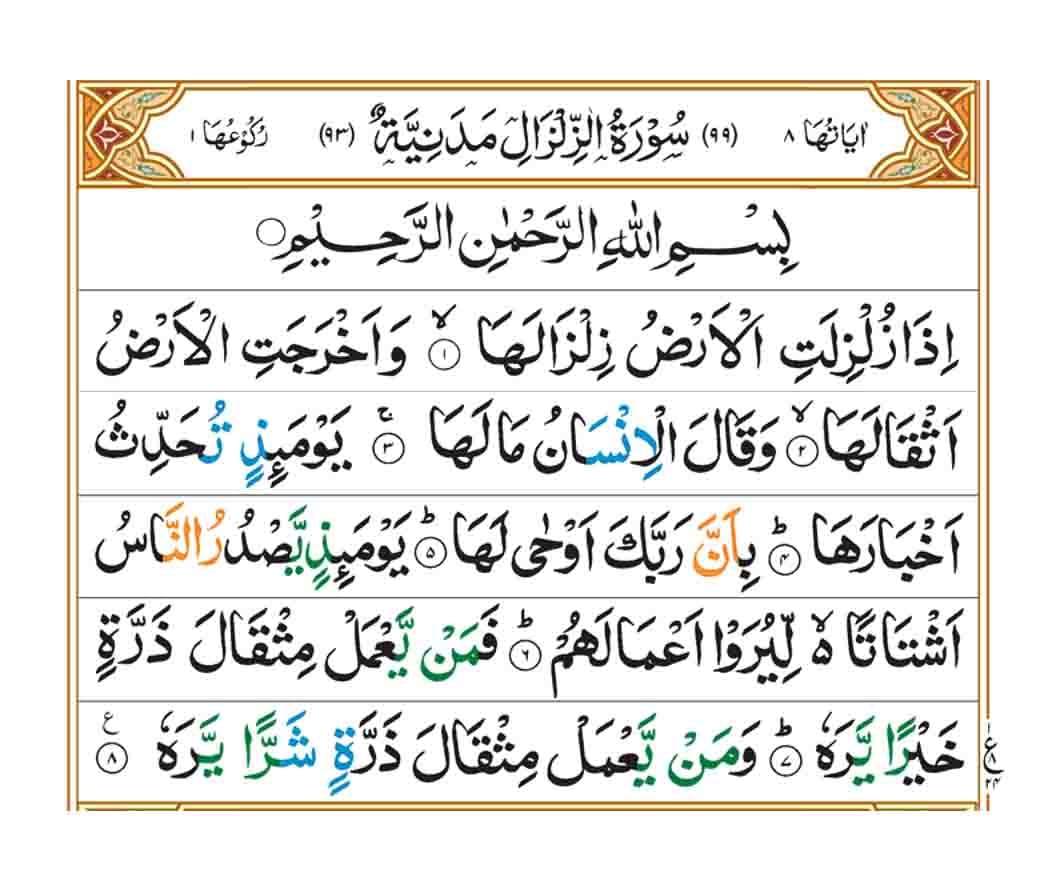 اٰيَاتُهَا ٨ (٩٩) سُوْرَةُ الزِّلْزَالِ مَدَنِيَّةٌ (٩٣) رُكُوْعُهَا ١
بِسْمِ اللّٰهِ الرَّحْمٰنِ الرَّحِيْمِ
اِذَا زُلْزِلَتِ الْاَرْضُ زِلْزَالَهَا ۙ ١ وَاَخْرَجَتِ الْاَرْضُ
اَثْقَالَهَا ۙ ٢ وَقَالَ الْاِنْسَانُ مَا لَهَا ۚ ٣ يَوْمَئِذٍ تُحَدِّثُ
اَخْبَارَهَا ؕ ٤ بِاَنَّ رَبَّكَ اَوْحٰى لَهَا ؕ ٥ يَوْمَئِذٍ يَّصْدُرُ النَّاسُ
اَشْتَاتًا ۙ۬ لِّيُرَوْا اَعْمَالَهُمْ ؕ ٦ فَمَنْ يَّعْمَلْ مِثْقَالَ ذَرَّةٍ
خَيْرًا يَّرَهٗ ؕ ٧ وَمَنْ يَّعْمَلْ مِثْقَالَ ذَرَّةٍ شَرًّا يَّرَهٗ ٨ ع
١ ع ٨ ٢٤